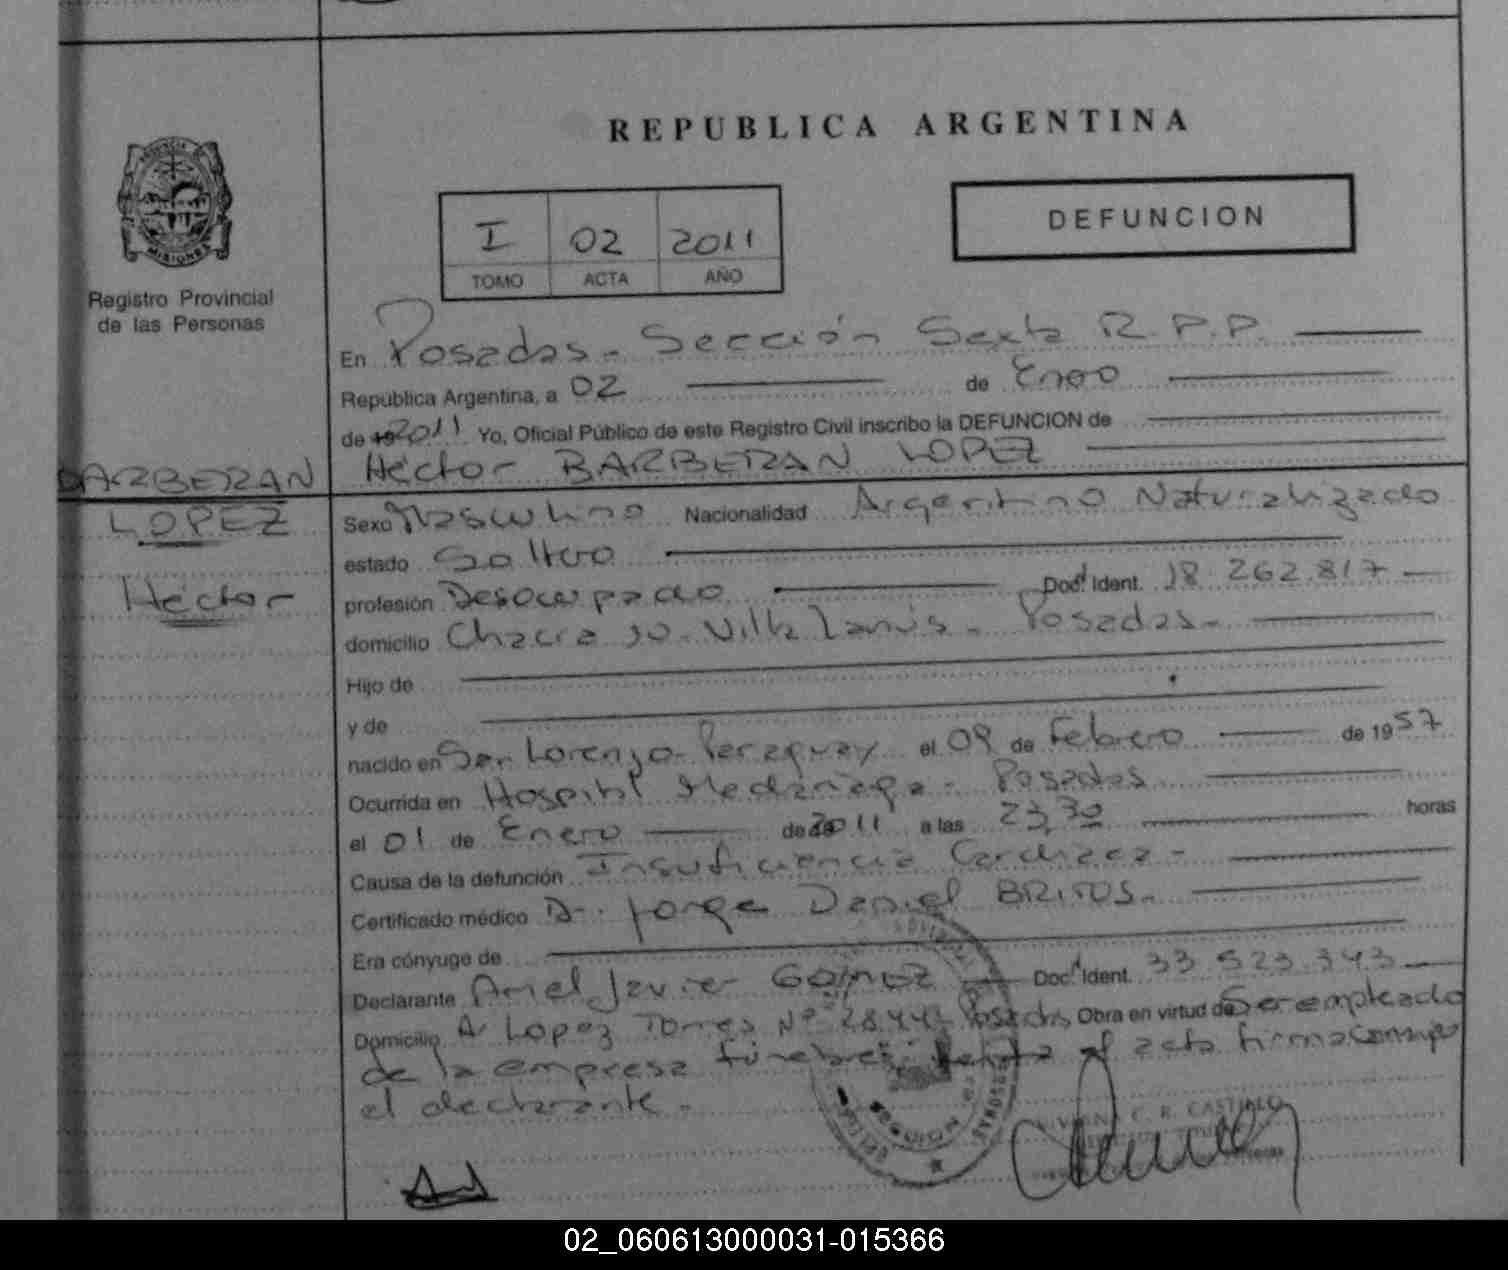 REPUBLICA ARGENTINA
PROVINCIA DE
MISIONES
Registro Provincial
de las Personas
I 02 2011
TOMO ACTA AÑO
DEFUNCION
En Posadas - Sección Sexta R.P.P.
República Argentina, a 02 de Enero
de 19 2011 Yo, Oficial Público de este Registro Civil inscribo la DEFUNCION de
Héctor BARBERAN LOPEZ
BARBERAN
LOPEZ
Héctor
Sexo Masculino Nacionalidad Argentino Naturalizado
estado Soltero
profesión Desocupado Doc. Ident. 18.262.817
domicilio Chacra Villa Lanús - Posadas -
Hijo de
y de
nacido en San Lorenzo - Paraguay el 09 de Febrero de 1957
Ocurrida en Hospital Madariaga - Posadas
el 01 de Enero de 2011 a las 23,30 horas
Causa de la defunción Insuficiencia Cardiaca -
Certificado médico Dr. Jorge Daniel BRITOS -
Era cónyuge de
Declarante Ariel Javier GOMEZ Doc. Ident. 33.523.343
Domicilio Av Lopez Torres Nº 2844 Posadas Obra en virtud de Ser empleado
de la empresa funebre, el acta firma conmigo
el declarante -
C. R. CASTILLO
02_060613000031-015366